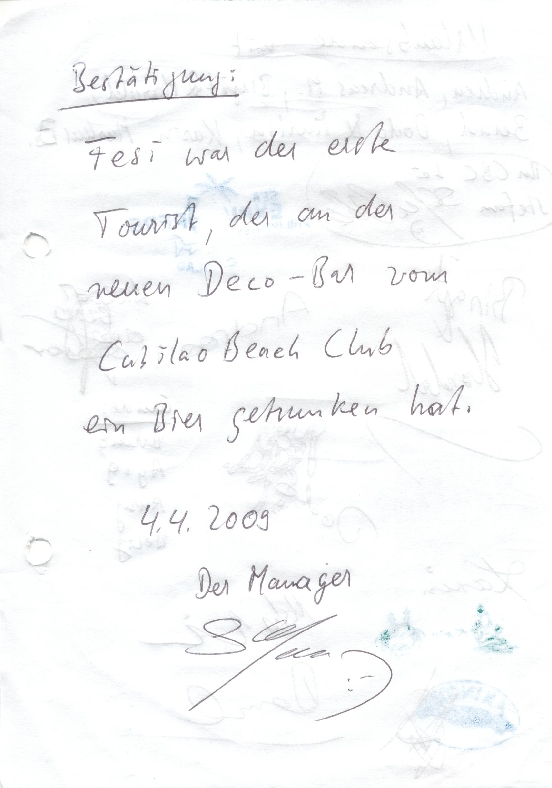 Bestätigung:
Fesi war der erste
Tourist, der an der
neuen Deco-Bar vom
Cabilao Beach Club
ein Bier getrunken hat.
4.4. 2009
Der Manager